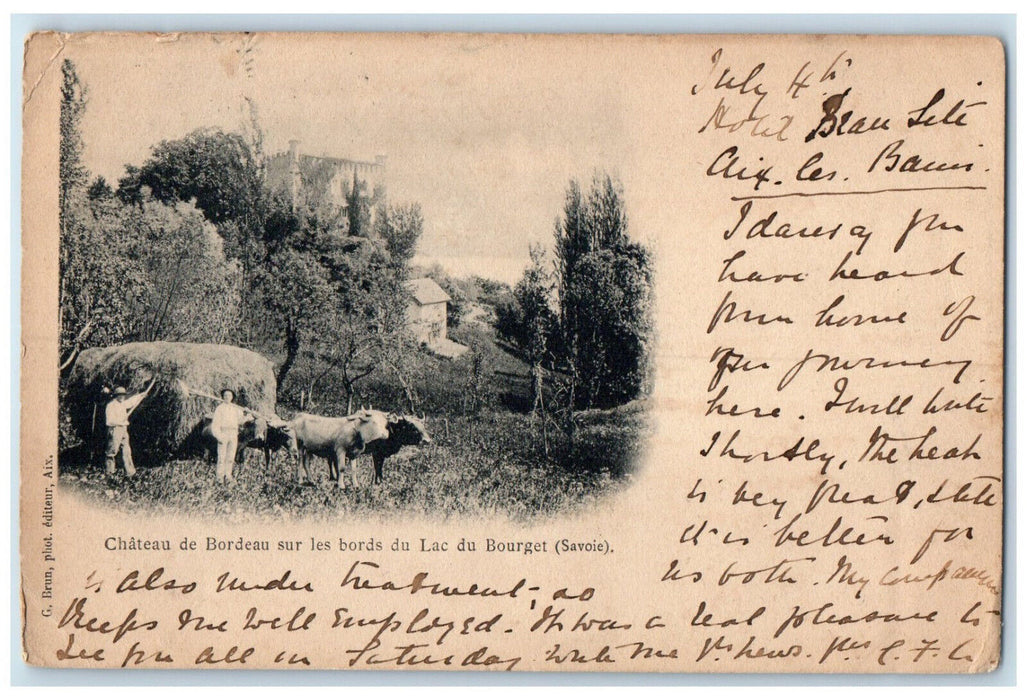 July 4th
Hotel Beau Site
Aix. les. Bains.
I daresay you
have heard
from home of
our journey
here. I will write
shortly, the heat
is very great, still
it is better for
us both. My companion
is also under treatment, so
keeps me well employed. It was a real pleasure to
see you all in Saturday write me yr news. yrs C. F.
Château de Bordeau sur les bords du Lac du Bourget (Savoie).
G. Brun, phot. éditeur, Aix.